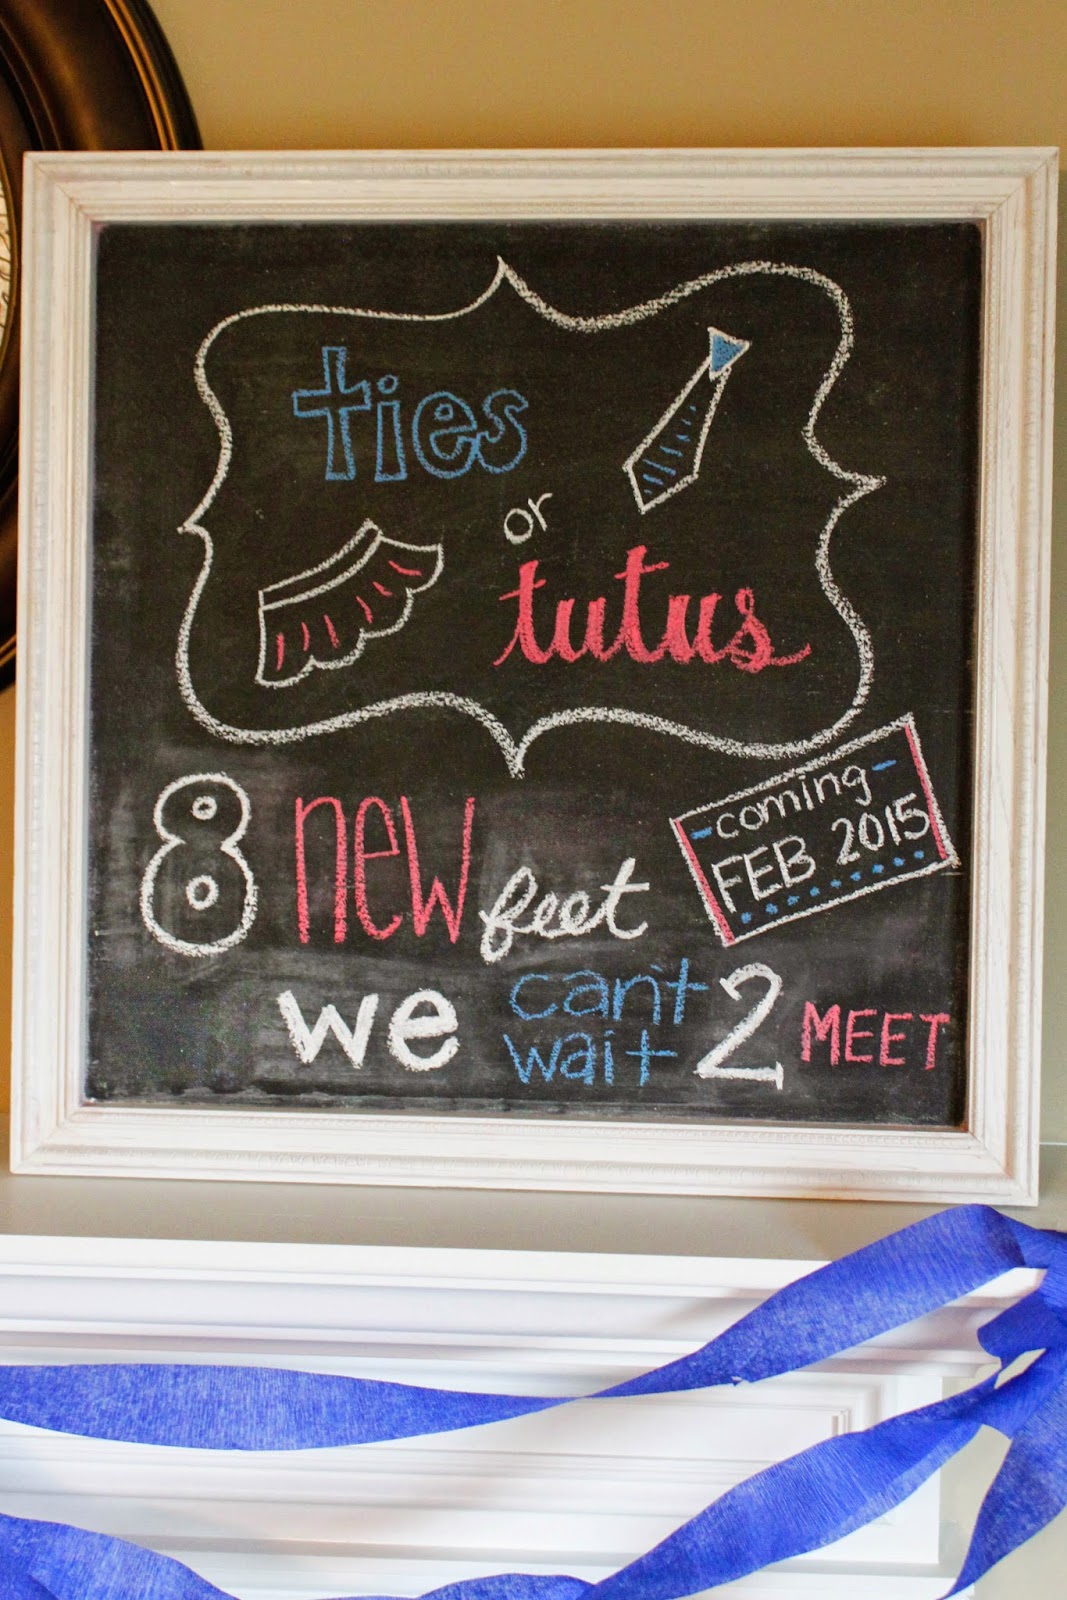 ties
or
tutus
coming
FEB 2015
8 new feet
we can't wait 2 MEET